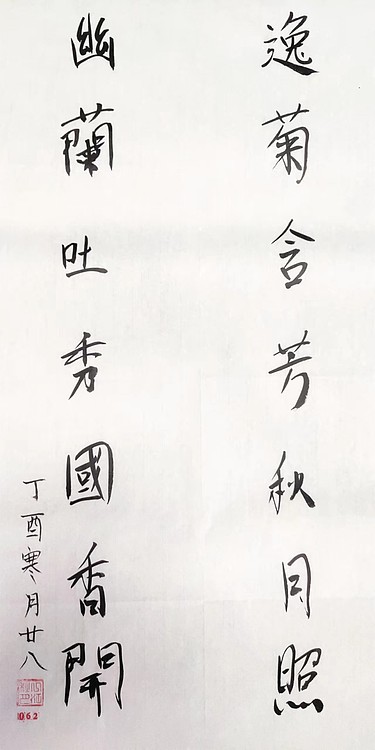 逸菊含芳秋月照
幽蘭吐秀國香開
丁酉寒月廿八
062